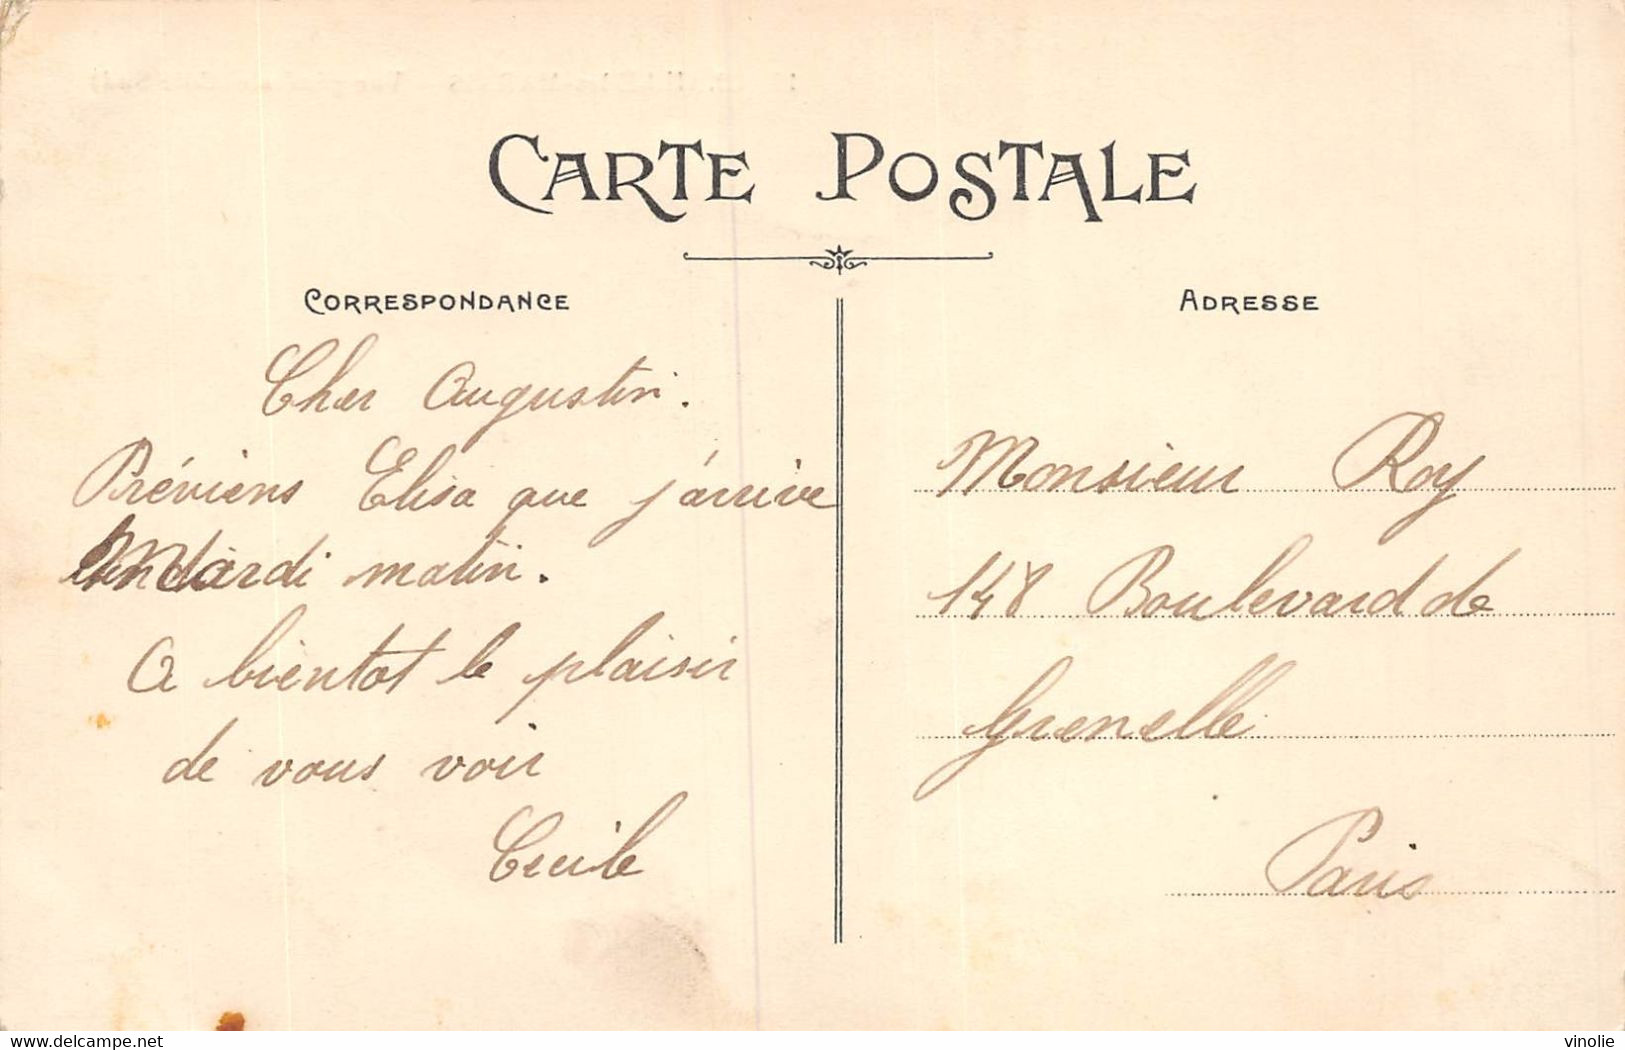 CARTE POSTALE
CORRESPONDANCE
Cher Augustin.
Préviens Elisa que j'arrive
Mardi matin.
A bientot le plaisir
de vous voir
Cecile
ADRESSE
Monsieur Roy
148 Boulevard de
Grenelle
Paris
www.delcampe.net
vinolie